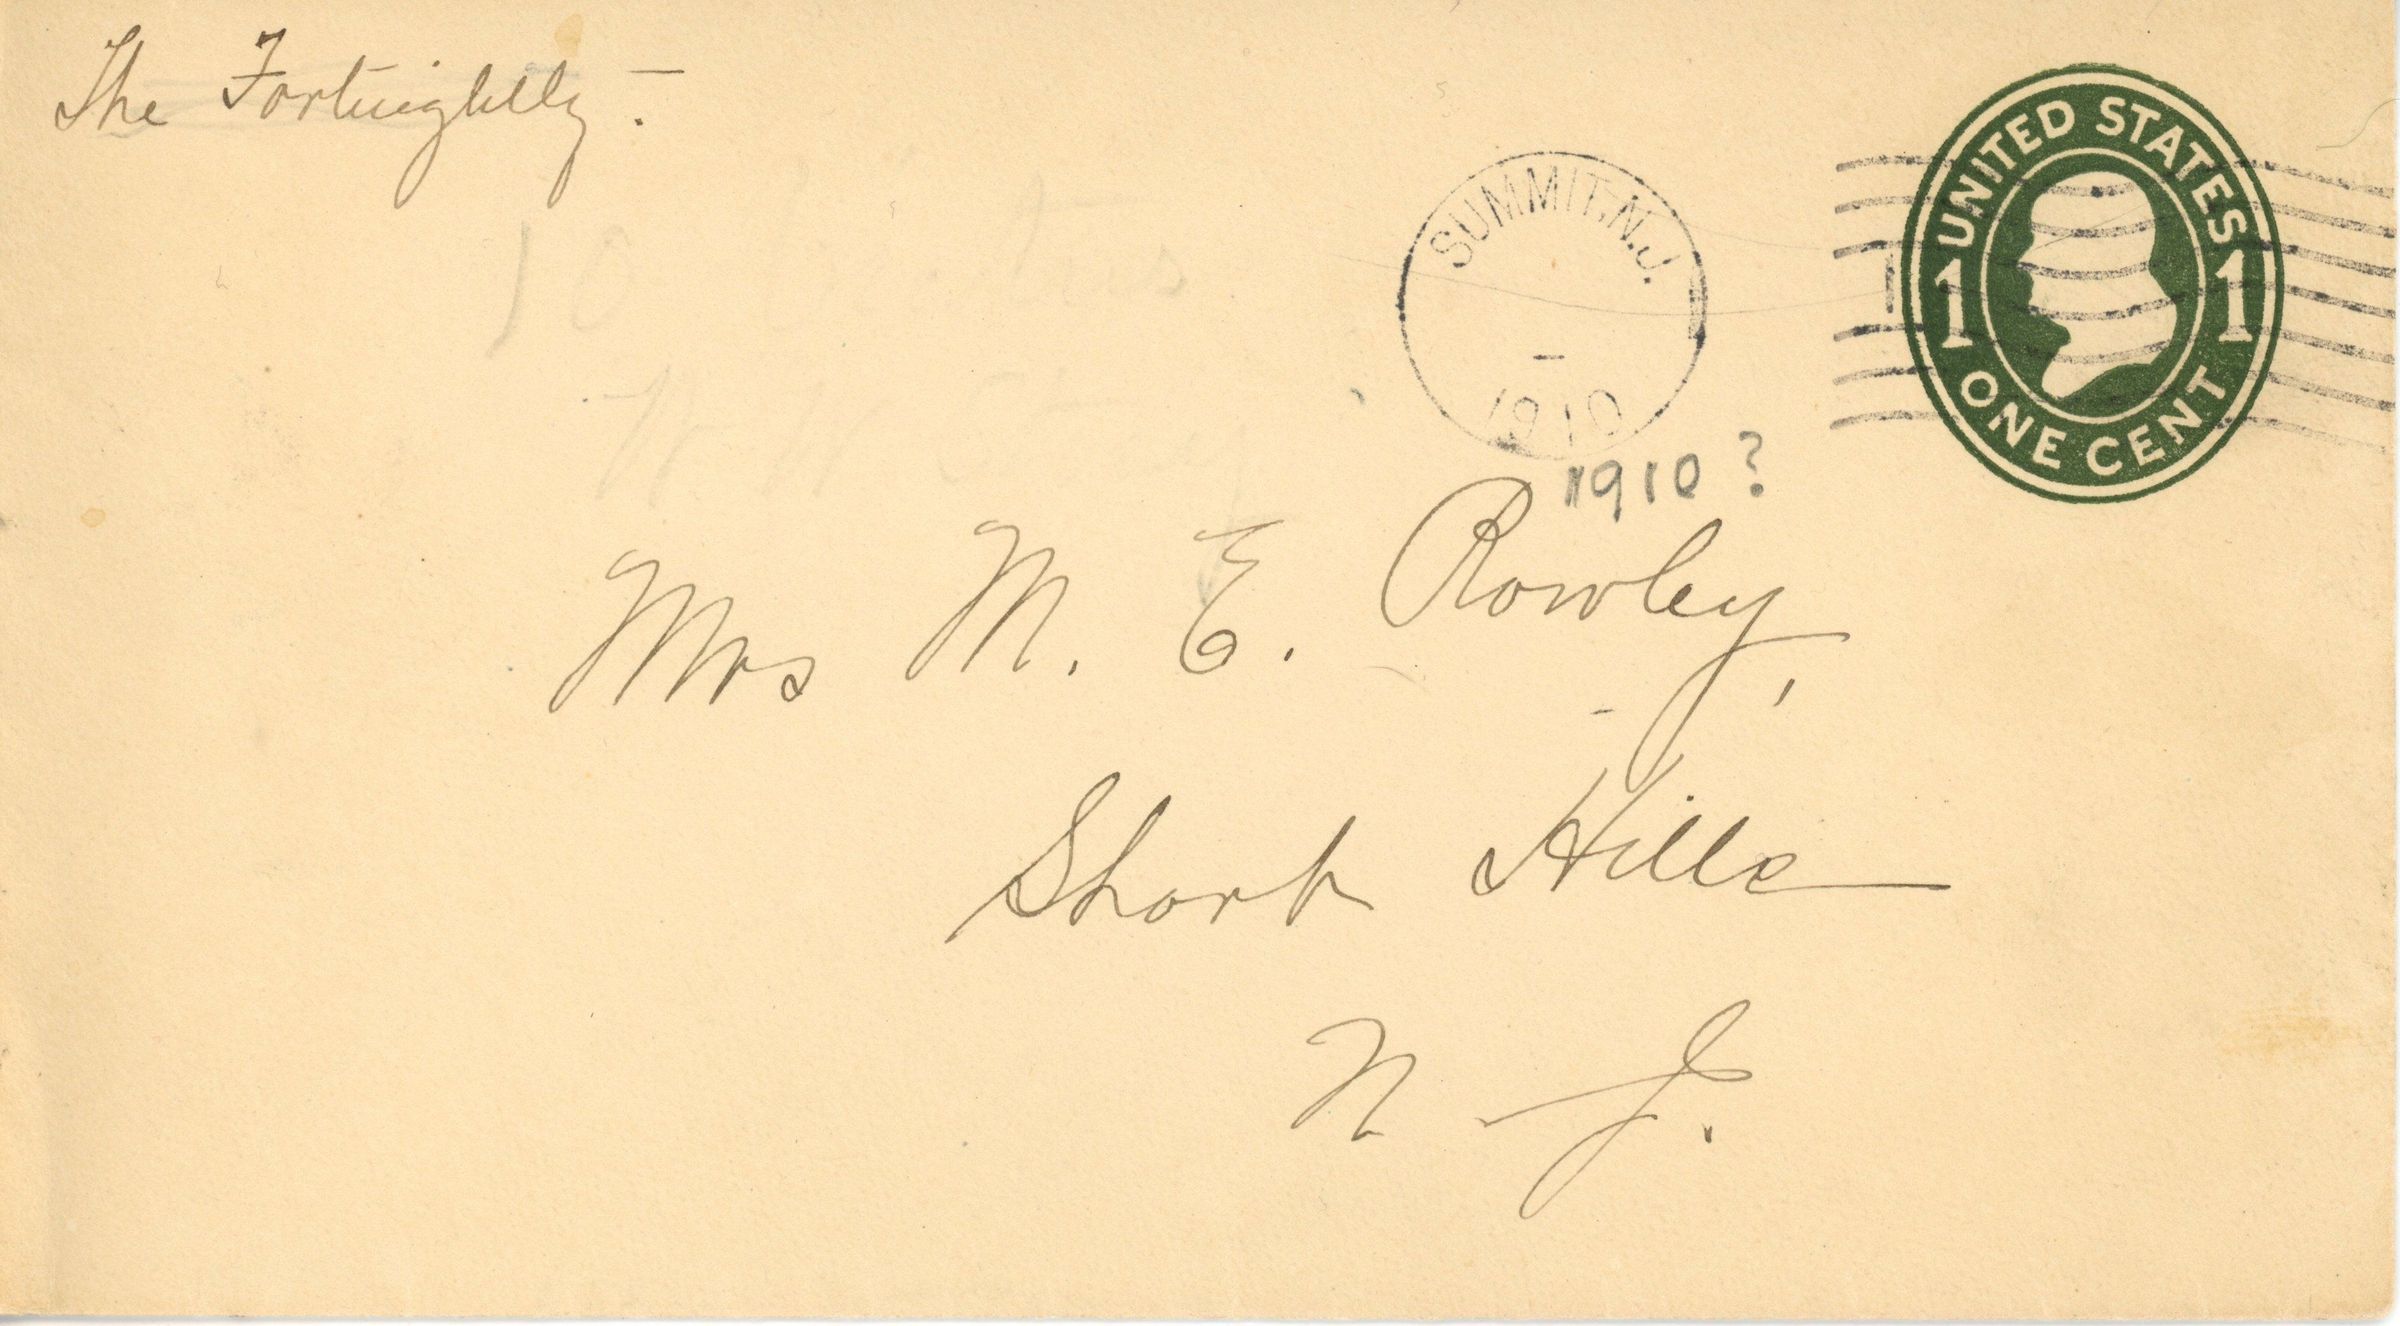 The Fortnightly. —
SUMMIT, N.J.
1910
UNITED STATES
1 1
ONE CENT
1910?
Mrs M. E. Rowley,
Short Hills
N J.